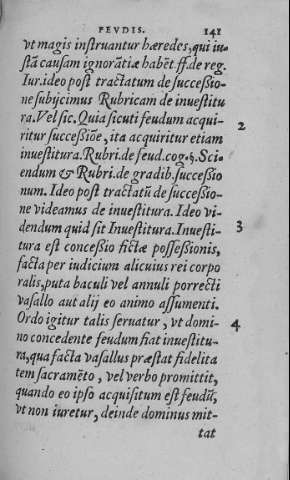 FEVDIS. 141
vt magis instruantur hæredes, qui iu-
stā causam ignorātiæ habēt. ff. de reg.
Iur. ideo post tractatum de successio-
ne subijcimus Rubricam de inuestitu
ra. Vel sic. Quia sicuti feudum acqui-
2
ritur successiōe, ita acquiritur etiam
inuestitura. Rubri. de feud. cog. §. Sci-
endum & Rubri. de gradib. successio
num. Ideo post tractatū de successio-
ne videamus de inuestitura. Ideo vi-
dendum quid sit Inuestitura. Inuesti-
3
tura est concessio fictæ possessionis,
facta per iudicium alicuius rei corpo
ralis, puta baculi vel annuli porrecti
vasallo aut alij eo animo assumenti.
Ordo igitur talis seruatur, vt domi-
4
no concedente feudum fiat inuestitu-
ra, qua facta vasallus præstat fidelita
tem sacramēto, vel verbo promittit,
quando eo ipso acquisitum est feudū,
vt non iuretur, deinde dominus mit-
tat